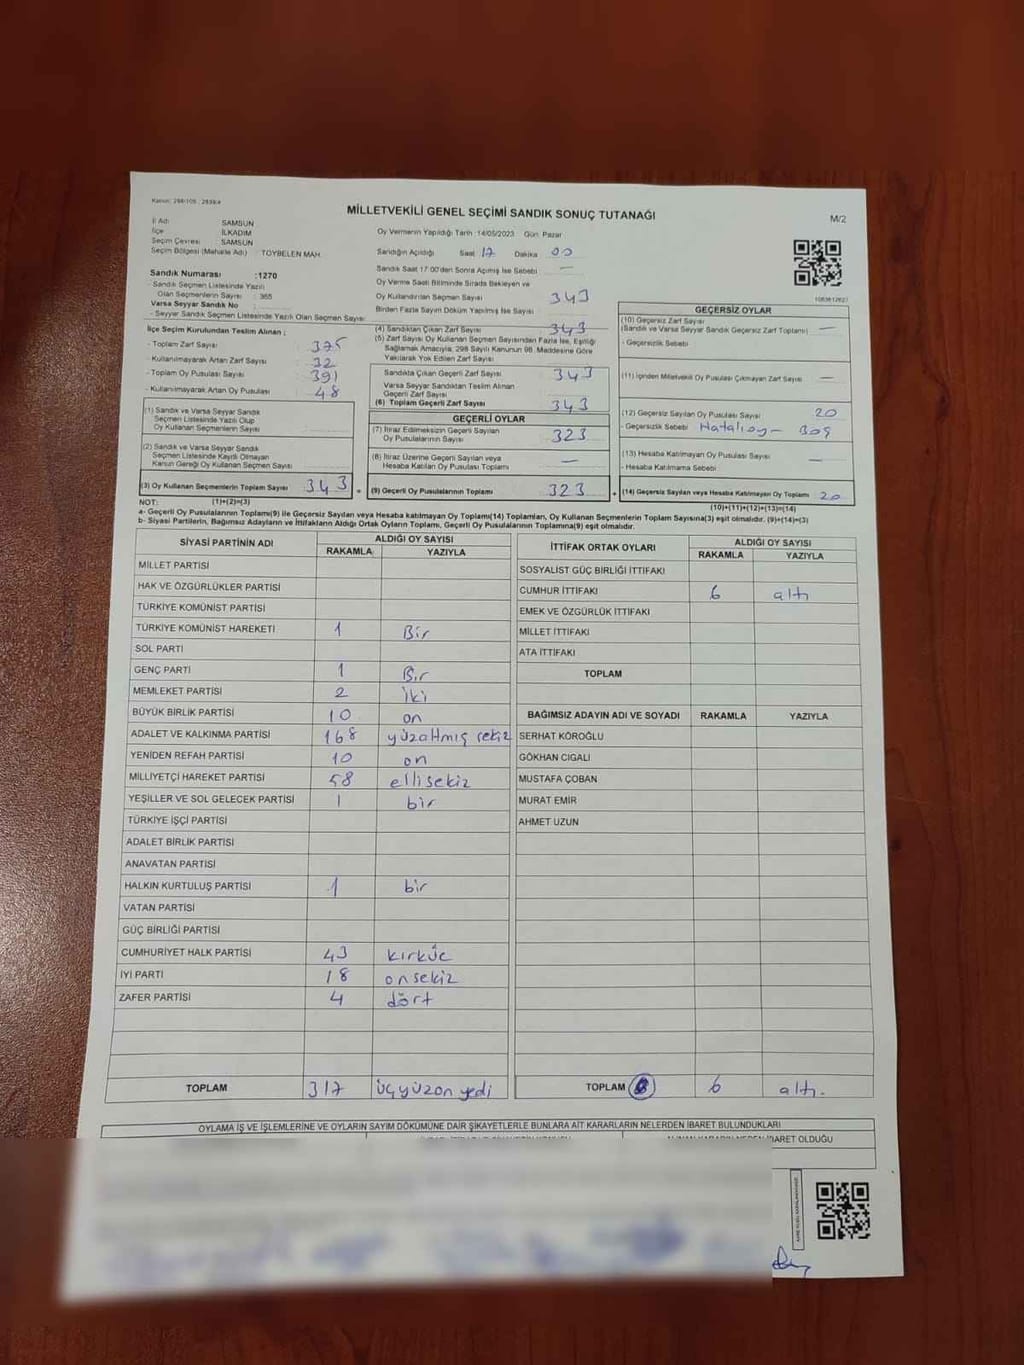 Kanun: 298/105 , 2839/4
MİLLETVEKİLİ GENEL SEÇİMİ SANDIK SONUÇ TUTANAĞI
M/2
İl Adı SAMSUN
İlçe İLKADIM
Seçim Çevresi SAMSUN
Seçim Bölgesi (Mahalle Adı) TOYBELEN MAH.
Sandık Numarası :1270
- Sandık Seçmen Listesinde Yazılı
Olan Seçmenlerin Sayısı : 365
Varsa Seyyar Sandık No :
- Seyyar Sandık Seçmen Listesinde Yazılı Olan Seçmen Sayısı
İlçe Seçim Kurulundan Teslim Alınan ;
- Toplam Zarf Sayısı 375
- Kullanılmayarak Artan Zarf Sayısı 32
- Toplam Oy Pusulası Sayısı 391
- Kullanılmayarak Artan Oy Pusulası 48
(1) Sandık ve Varsa Seyyar Sandık
Seçmen Listesinde Yazılı Olup
Oy Kullanan Seçmenlerin Sayısı
(2) Sandık ve Varsa Seyyar Sandık
Seçmen Listesinde Kayıtlı Olmayan
Kanun Gereği Oy Kullanan Seçmen Sayısı
(3) Oy Kullanan Seçmenlerin Toplam Sayısı 343
(1)+(2)=(3)
Oy Vermenin Yapıldığı Tarih :14/05/2023 Gün: Pazar
Sandığın Açıldığı Saat 17 Dakika 00
Sandık Saat 17:00'den Sonra Açılmış İse Sebebi —
Oy Verme Saati Bitiminde Sırada Bekleyen ve
Oy Kullandırılan Seçmen Sayısı 343
Birden Fazla Sayım Döküm Yapılmış İse Sayısı
(4) Sandıktan Çıkan Zarf Sayısı 343
(5) Zarf Sayısı Oy Kullanan Seçmen Sayısından Fazla İse, Eşitliği
Sağlamak Amacıyla, 298 Sayılı Kanunun 98. Maddesine Göre
Yakılarak Yok Edilen Zarf Sayısı
Sandıkta Çıkan Geçerli Zarf Sayısı 343
Varsa Seyyar Sandıktan Teslim Alınan
Geçerli Zarf Sayısı
(6) Toplam Geçerli Zarf Sayısı 343
GEÇERLİ OYLAR
(7) İtiraz Edilmeksizin Geçerli Sayılan
Oy Pusulalarının Sayısı 323
(8) İtiraz Üzerine Geçerli Sayılan veya
Hesaba Katılan Oy Pusulası Toplamı —
= (9) Geçerli Oy Pusulalarının Toplamı 323
1083612627
GEÇERSİZ OYLAR
(10) Geçersiz Zarf Sayısı
(Sandık ve Varsa Seyyar Sandık Geçersiz Zarf Toplamı) —
- Geçersizlik Sebebi
(11) İçinden Milletvekili Oy Pusulası Çıkmayan Zarf Sayısı —
(12) Geçersiz Sayılan Oy Pusulası Sayısı 20
- Geçersizlik Sebebi Hatalıoy - Boş
(13) Hesaba Katılmayan Oy Pusulası Sayısı —
- Hesaba Katılmama Sebebi
+ (14) Geçersiz Sayılan veya Hesaba Katılmayan Oy Toplamı 20
(10)+(11)+(12)+(13)=(14)
NOT:
a- Geçerli Oy Pusulaları Toplamı(9) ile Geçersiz Sayılan veya Hesaba katılmayan Oy Toplamı(14) Toplamları, Oy Kullanan Seçmenlerin Toplam Sayısına(3) eşit olmalıdır. (9)+(14)=(3)
b- Siyasi Partilerin, Bağımsız Adayların ve İttifakların Aldığı Ortak Oyların Toplamı, Geçerli Oy Pusulalarının Toplamına(9) eşit olmalıdır.
SİYASİ PARTİNİN ADI ALDIĞI OY SAYISI
RAKAMLA YAZIYLA
MİLLET PARTİSİ
HAK VE ÖZGÜRLÜKLER PARTİSİ
TÜRKİYE KOMÜNİST PARTİSİ
TÜRKİYE KOMÜNİST HAREKETİ 1 Bir
SOL PARTİ
GENÇ PARTİ 1 Bir
MEMLEKET PARTİSİ 2 İki
BÜYÜK BİRLİK PARTİSİ 10 on
ADALET VE KALKINMA PARTİSİ 168 yüzaltmış sekiz
YENİDEN REFAH PARTİSİ 10 on
MİLLİYETÇİ HAREKET PARTİSİ 58 ellisekiz
YEŞİLLER VE SOL GELECEK PARTİSİ 1 bir
TÜRKİYE İŞÇİ PARTİSİ
ADALET BİRLİK PARTİSİ
ANAVATAN PARTİSİ
HALKIN KURTULUŞ PARTİSİ 1 bir
VATAN PARTİSİ
GÜÇ BİRLİĞİ PARTİSİ
CUMHURİYET HALK PARTİSİ 43 kırküç
İYİ PARTİ 18 onsekiz
ZAFER PARTİSİ 4 dört
TOPLAM 317 üçyüzon yedi
İTTİFAK ORTAK OYLARI ALDIĞI OY SAYISI
RAKAMLA YAZIYLA
SOSYALİST GÜÇ BİRLİĞİ İTTİFAKI
CUMHUR İTTİFAKI 6 altı
EMEK VE ÖZGÜRLÜK İTTİFAKI
MİLLET İTTİFAKI
ATA İTTİFAKI
TOPLAM
BAĞIMSIZ ADAYIN ADI VE SOYADI RAKAMLA YAZIYLA
SERHAT KÖROĞLU
GÖKHAN CIGALİ
MUSTAFA ÇOBAN
MURAT EMİR
AHMET UZUN
TOPLAM 6 altı.
OYLAMA İŞ VE İŞLEMLERİNE VE OYLARIN SAYIM DÖKÜMÜNE DAİR ŞİKAYETLERLE BUNLARA AİT KARARLARIN NELERDEN İBARET BULUNDUKLARI
İBARET OLDUĞU